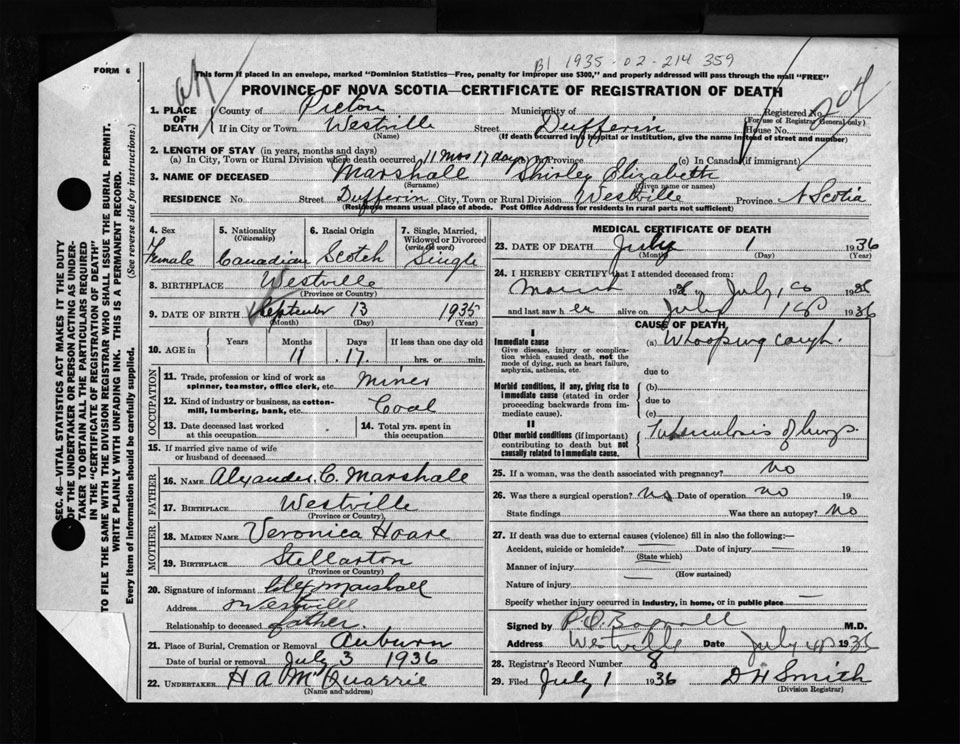 B1 1935-02-214359
FORM 6
This form if placed in an envelope, marked "Dominion Statistics—Free, penalty for improper use $300," and properly addressed will pass through the mail "FREE"
PROVINCE OF NOVA SCOTIA—CERTIFICATE OF REGISTRATION OF DEATH
1. PLACE OF DEATH County of Pictou Municipality of Registered No. 204
(For use of Registrar General only)
If in City or Town Westville Street Dufferin House No.
(Name) (If death occurred in a hospital or institution, give the name instead of street and number)
2. LENGTH OF STAY (in years, months and days)
(a) In City, Town or Rural Division where death occurred 11 mos 17 days (b) In Province (c) In Canada (if immigrant)
3. NAME OF DECEASED Marshall Shirley Elizabeth
(Surname) (Given name or names)
RESIDENCE No Street Dufferin City, Town or Rural Division Westville Province N Scotia
(Residence means usual place of abode. Post Office Address for residents in rural parts not sufficient)
4. Sex 5. Nationality (Citizenship) 6. Racial Origin 7. Single, Married, Widowed or Divorced (write the word)
Female Canadian Scotch Single
8. BIRTHPLACE Westville
(Province or Country)
9. DATE OF BIRTH September 13 1935
(Month) (Day) (Year)
10. AGE in Years Months Days If less than one day old
11 17 hrs. or min.
OCCUPATION
11. Trade, profession or kind of work as spinner, teamster, office clerk, etc. Miner
12. Kind of industry or business, as cotton-mill, lumbering, bank, etc. Coal
13. Date deceased last worked at this occupation 14. Total yrs. spent in this occupation
15. If married give name of wife or husband of deceased
FATHER
16. NAME Alexander C. Marshall
17. BIRTHPLACE Westville
(Province or Country)
MOTHER
18. MAIDEN NAME Veronica Hoare
19. BIRTHPLACE Stellarton
(Province or Country)
20. Signature of informant Alex Marshall
Address Westville
Relationship to deceased father.
21. Place of Burial, Cremation or Removal Auburn
Date of burial or removal July 3 1936
22. UNDERTAKER H A McQuarrie
(Name and address)
MEDICAL CERTIFICATE OF DEATH
23. DATE OF DEATH July 1 1936
(Month) (Day) (Year)
24. I HEREBY CERTIFY that I attended deceased from:
and last saw h er alive on July 1936
CAUSE OF DEATH
I
Immediate cause (a) Whooping cough.
Give disease, injury or complication which caused death, not the mode of dying, such as heart failure, asphyxia, asthenia, etc.
due to
Morbid conditions, if any, giving rise to immediate cause (stated in order proceeding backwards from immediate cause). (b)
due to
(c)
II
Other morbid conditions (if important) contributing to death but not causally related to immediate cause. Tuberculosis of lungs.
25. If a woman, was the death associated with pregnancy? no
26. Was there a surgical operation? no Date of operation no 19
State findings Was there an autopsy? No
27. If death was due to external causes (violence) fill in also the following:—
Accident, suicide or homicide? Date of injury 19
(State which)
Manner of injury
(How sustained)
Nature of injury
Specify whether injury occurred in industry, in home, or in public place
Signed by M.D.
Address Westville Date July 1936
28. Registrar's Record Number 8
29. Filed July 1 1936 D H Smith
(Division Registrar)
SEC. 46—VITAL STATISTICS ACT MAKES IT THE DUTY
OF THE UNDERTAKER OR PERSON ACTING AS UNDERTAKER TO OBTAIN ALL THE PARTICULARS REQUIRED
IN THE "CERTIFICATE OF REGISTRATION OF DEATH"
TO FILE THE SAME WITH THE DIVISION REGISTRAR WHO SHALL ISSUE THE BURIAL PERMIT.
WRITE PLAINLY WITH UNFADING INK. THIS IS A PERMANENT RECORD.
Every item of information should be carefully supplied. (See reverse side for instructions.)